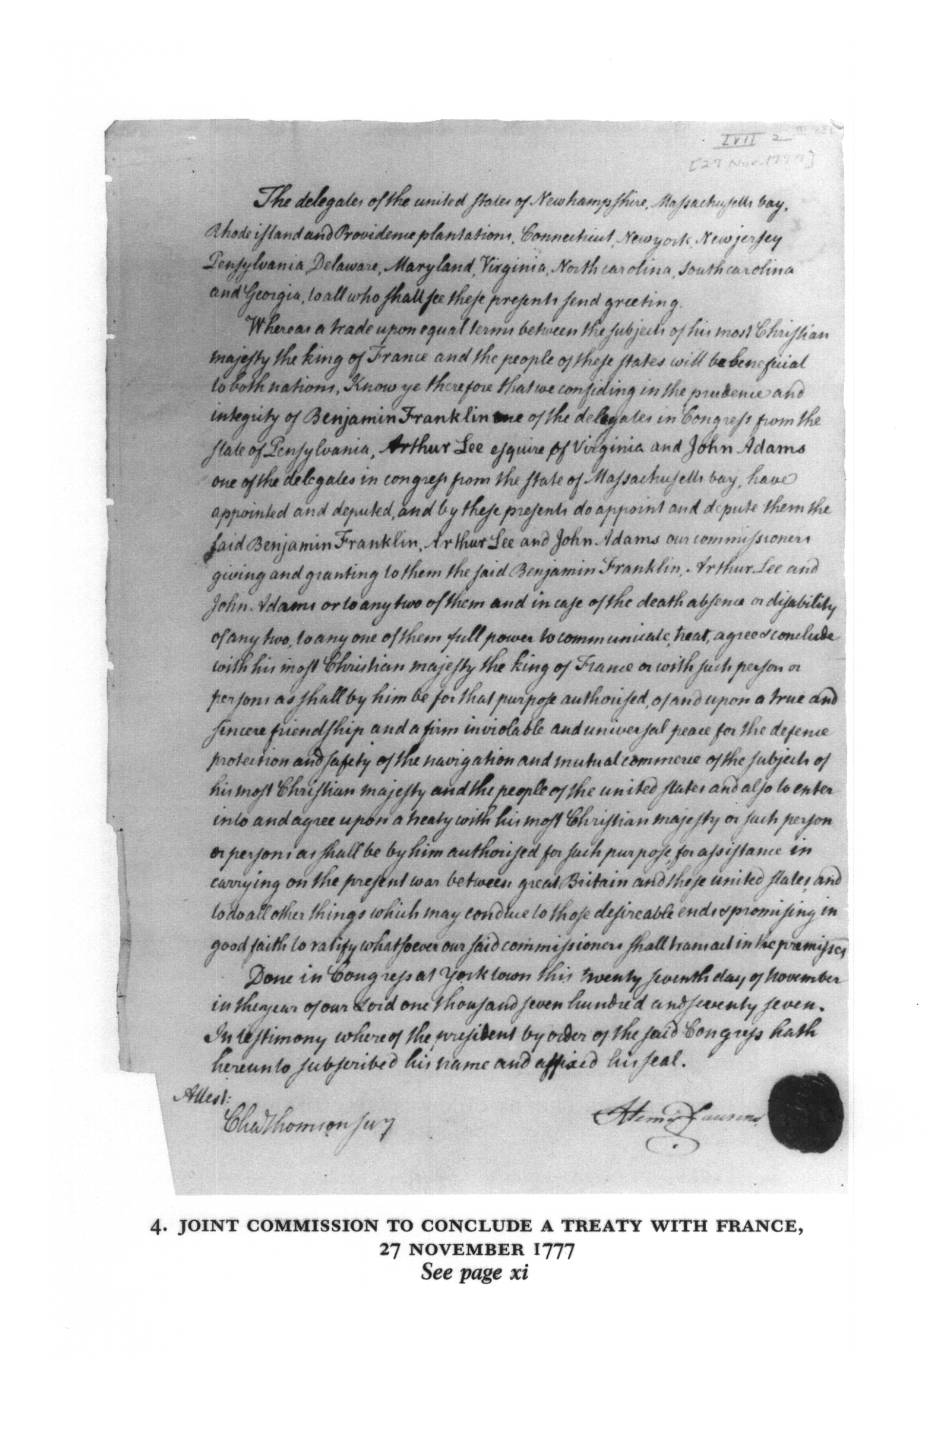 LVII 2
[27 Nov. 1777]
The delegates of the united states of Newhampshire, Massachusetts bay,
Rhodeisland and Providence plantations, Connecticut, Newyork, Newjersey
Pensylvania, Delaware, Maryland, Virginia, North carolina, South carolina
and Georgia, to all who shall see these presents send greeting.
Whereas a trade upon equal terms between the subjects of his most Christian
majesty the king of France and the people of these states will be beneficial
to both nations, Know ye therefore that we confiding in the prudence and
integrity of Benjamin Franklin one of the delegates in Congress from the
state of Pensylvania, Arthur Lee esquire of Virginia and John Adams
one of the delegates in congress from the state of Massachusetts bay, have
appointed and deputed, and by these presents do appoint and depute them the
said Benjamin Franklin, Arthur Lee and John Adams our commissioners
giving and granting to them the said Benjamin Franklin, Arthur Lee and
John Adams or to any two of them and in case of the death absence or disability
of any two, to any one of them full power to communicate, treat, agree & conclude
with his most Christian majesty the king of France or with such person or
persons as shall by him be for that purpose authorised, of and upon a true and
sincere friendship and a firm inviolable and universal peace for the defence
protection and safety of the navigation and mutual commerce of the subjects of
his most Christian majesty and the people of the united states and also to enter
into and agree upon a treaty with his most Christian majesty or such person
or persons as shall be by him authorised for such purpose, for assistance in
carrying on the present war between great Britain and these united states, and
to do all other things which may conduce to those desireable ends & promising in
good faith to ratify whatsoever our said commissioners shall transact in the premisses
Done in Congress at Yorktown this twenty seventh day of November
in the year of our Lord one thousand seven hundred and seventy seven.
In testimony whereof the president by order of the said Congress hath
hereunto subscribed his name and affixed his seal.
Attest:
Chas Thomson secy
Henry Laurens
4. JOINT COMMISSION TO CONCLUDE A TREATY WITH FRANCE,
27 NOVEMBER 1777
See page xi